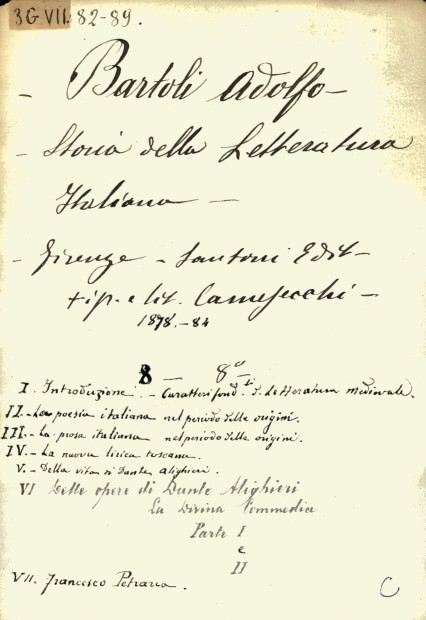 3G.VII.82-89.
- Bartoli Adolfo -
- Storia della Letteratura
Italiana -
- Firenze - Sansoni Edit -
tip. e lit. Carnesecchi -
1878.-84
8 - 8º
I. Introduzione. - Caratteri fond.li d. Letteratura medievale.
II. - La poesia italiana nel periodo delle origini.
III. - La prosa italiana nel periodo delle origini.
IV. - La nuova lirica toscana.
V. - Della vita di Dante Alighieri.
VI Delle opere di Dante Alighieri
La Divina Commedia
Parte I
e
II
VII. Francesco Petrarca.
C